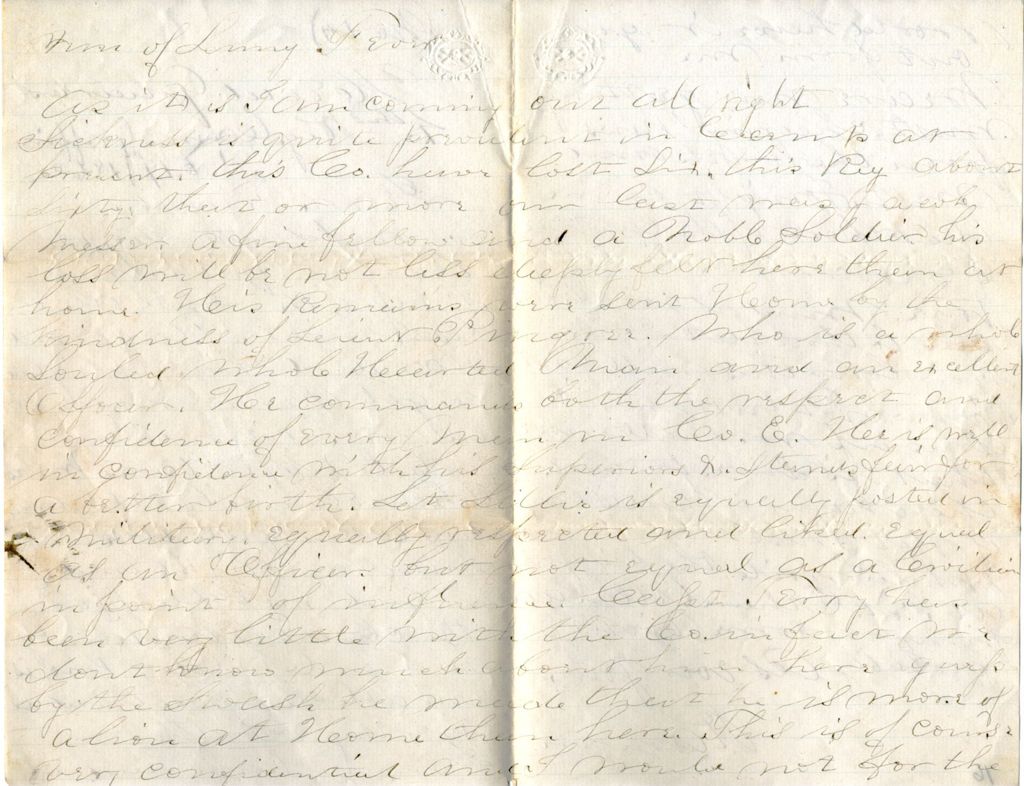 of Lung Fever
As it is I am coming out all right
Sickness is quite prevalent in Camp at
present. this Co. have lost Six. this Reg about
Sixty that or more our last was Jacob
Messer a fine fellow and a Noble Soldier his
loss will be not less deeply felt here than at
home. His Remains were sent Home by the
kindness of Lieut Who is a whole
Souled Whole Hearted Man and an excellent
Officer. He commands both the respect and
confidence of every Man in Co. E. He is well
in confidence with his Superiors & Stands fair for
a better birth. Lt is equally posted in
Military equally respected and liked. equal
as an Officer but not equal as a Civilian
in point of influence. Capt. Terry has
been very little with the Co. in fact We
dont know much about him here guess
by the he made that he is more of
a lion at Home than here. This is of course
very confidential and I would not for the